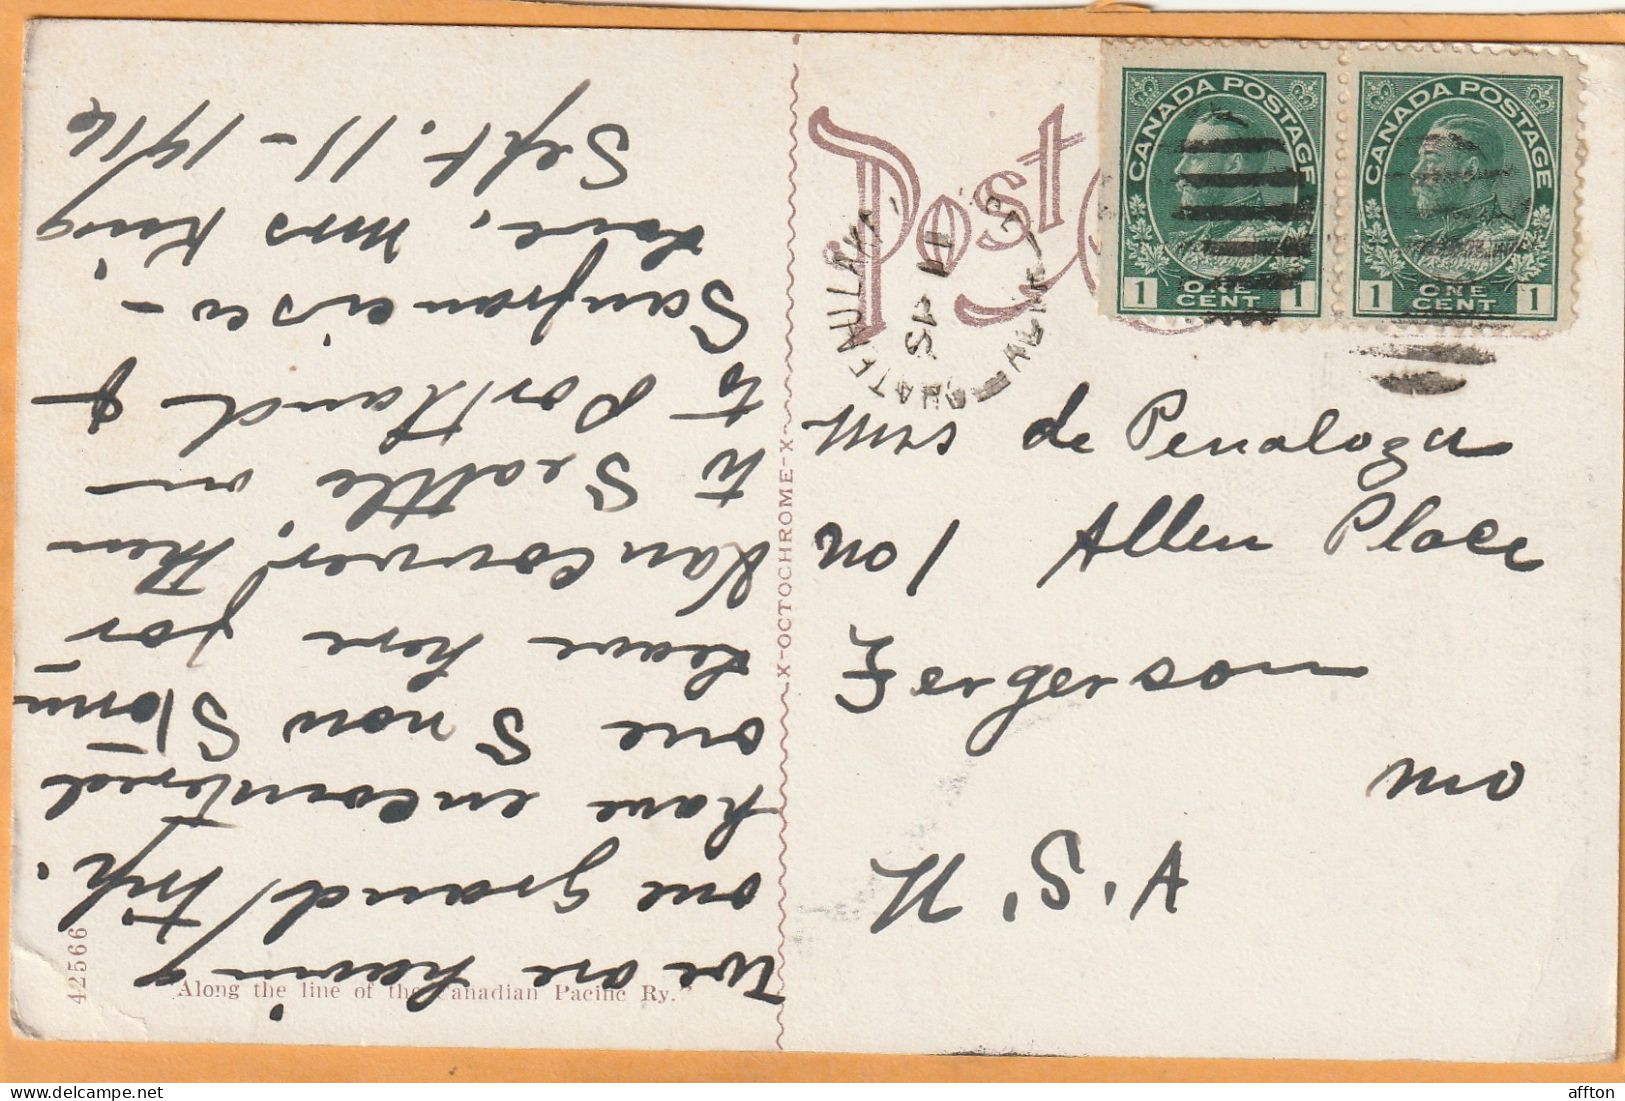 We are having
one grand trip.
have encountered
one Snow Storm
leave here for
Vancouver, then
to Seattle on
to Portland &
Sanfrancisco -
Love, Mrs King
Sept. 11 - 1916
Post
CANADA POSTAGE
1 ONE CENT 1
CANADA POSTAGE
1 ONE CENT 1
11
Mrs de Penaloza
no 1 Allen Place
Fergerson
Mo
U.S.A
X-OCTOCHROME-X
42566
"Along the line of the Canadian Pacific Ry."
affton